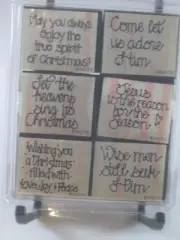 May you always
enjoy the
true spirit
of Christmas!
Come let
us adore
Him
Let the
heavens
sing its
Christmas
Jesus
is the reason
for the
Season
Wishing you
a Christmas
filled with
Love, Joy & Peace
Wise men
still seek
Him